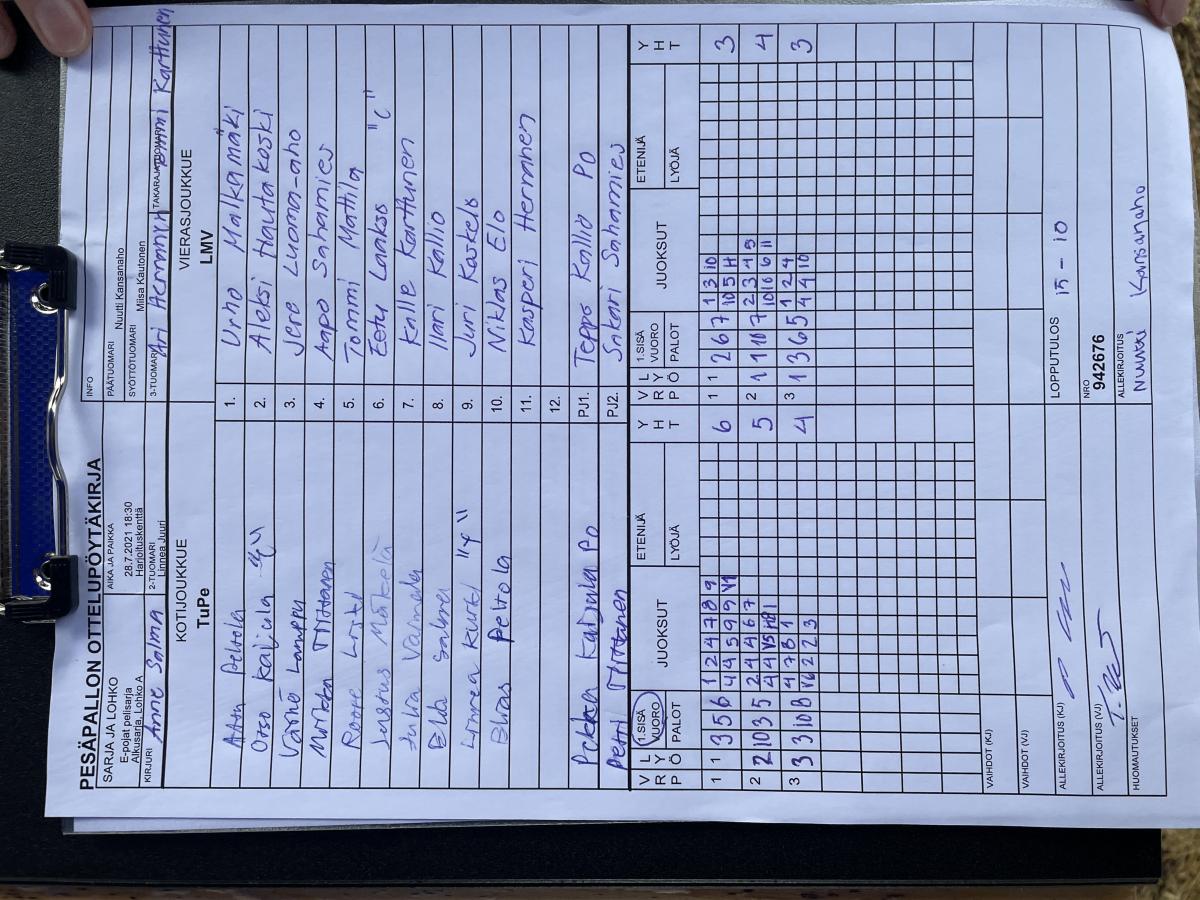 PESÄPALLON OTTELUPÖYTÄKIRJA
SARJA JA LOHKO
E-pojat pelisarja
Alkusarja, Lohko A
AIKA JA PAIKKA
28.7.2021 18:30
Harjoituskenttä
INFO
PÄÄTUOMARI Nuutti Kansanaho
SYÖTTÖTUOMARI Miisa Kautonen
KIRJURI Anne Salma
2-TUOMARI Linnea Juuri
3-TUOMARI Ari Hernanen
TAKARAJATUOMARI Emmi Karttunen
KOTIJOUKKUE
TuPe
VIERASJOUKKUE
LMV
Attu Peltola 1. Urho Malkamäki
Otso Kaijula "C" 2. Aleksi Hautakoski
Väinö Lamppu 3. Jere Luoma-aho
4. Aapo Sahamies
5. Tommi Mattila
Justus Mäkelä 6. Eetu Laakso "C"
7. Kalle Karttunen
Salmi 8. Ilari Kallio
9. Juri Kaskelo
Peltola 10. Niklas Elo
11. Kasperi Hernanen
12.
Pekka Kaijula PO PJ1. Teppo Kallio PO
Petri PJ2. Sakari Sahamies
VRP LYÖ 1.SISÄVUORO PALOT JUOKSUT ETENIJÄ LYÖJÄ YHT VRP LYÖ 1.SISÄVUORO PALOT JUOKSUT ETENIJÄ LYÖJÄ YHT
1 1 3 5 6 1 2 4 7 8 9 6 1 1 2 6 7 1 3 10 3
4 4 5 9 9 V1 10 5 H
2 2 10 3 5 2 4 4 6 7 5 2 1 1 10 7 2 3 4 9 4
4 4 V5 H2 1 10 10 6 11
3 3 3 10 8 4 7 8 1 4 3 1 3 6 5 1 2 4 3
V6 2 2 3 4 4 10
VAIHDOT (KJ)
VAIHDOT (VJ)
ALLEKIRJOITUS (KJ)
LOPPUTULOS 15 - 10
ALLEKIRJOITUS (VJ)
NRO
942676
HUOMAUTUKSET
ALLEKIRJOITUS
Nuutti Kansanaho